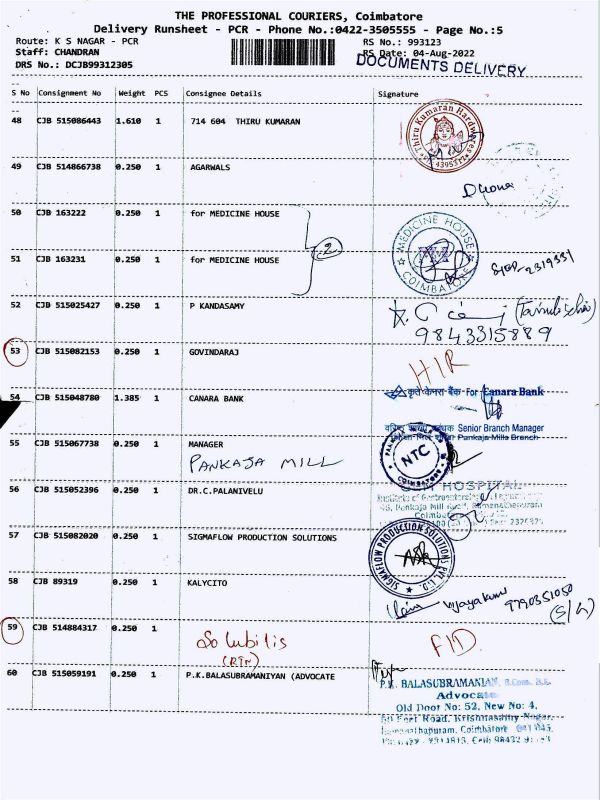 THE PROFESSIONAL COURIERS, Coimbatore
Delivery Runsheet - PCR - Phone No.:0422-3505555 - Page No.:5
Route: K S NAGAR - PCR
RS No.: 993123
Staff: CHANDRAN
RS Date: 04-Aug-2022
DRS No.: DCJB99312305
DOCUMENTS DELIVERY
S No Consignment No Weight PCS Consignee Details Signature
48 CJB 515086443 1.610 1 714 604 THIRU KUMARAN
Thiru Kumaran Hardwares
4395317
49 CJB 514866738 0.250 1 AGARWALS
50 CJB 163222 0.250 1 for MEDICINE HOUSE
2
MEDICINE HOUSE
COIMBATORE
51 CJB 163231 0.250 1 for MEDICINE HOUSE
2319331
52 CJB 515025427 0.250 1 P KANDASAMY
9843315889
53 CJB 515082153 0.250 1 GOVINDARAJ
HIR
54 CJB 515048780 1.385 1 CANARA BANK
कृते केनरा बैंक For Canara Bank
Senior Branch Manager
Pankaja Mills Branch
55 CJB 515067738 0.250 1 MANAGER
PANKAJA MILL
NTC
COIMBATORE
56 CJB 515052396 0.250 1 DR.C.PALANIVELU
HOSPITAL
57 CJB 515082020 0.250 1 SIGMAFLOW PRODUCTION SOLUTIONS
SIGMAFLOW PRODUCTION SOLUTIONS PVT. LTD.
58 CJB 89319 0.250 1 KALYCITO
Vijayakumar 9790351050
(S/W)
59 CJB 514884317 0.250 1
Solubilis
(RTN)
FID.
60 CJB 515059191 0.250 1 P.K.BALASUBRAMANIYAN (ADVOCATE
P.K. BALASUBRAMANIAN, B.Com. B.L.
Advocate
Old Door No: 52, New No: 4,
Road, Krishnasamy Nagar,
Ramanathapuram, Coimbatore 641 045.